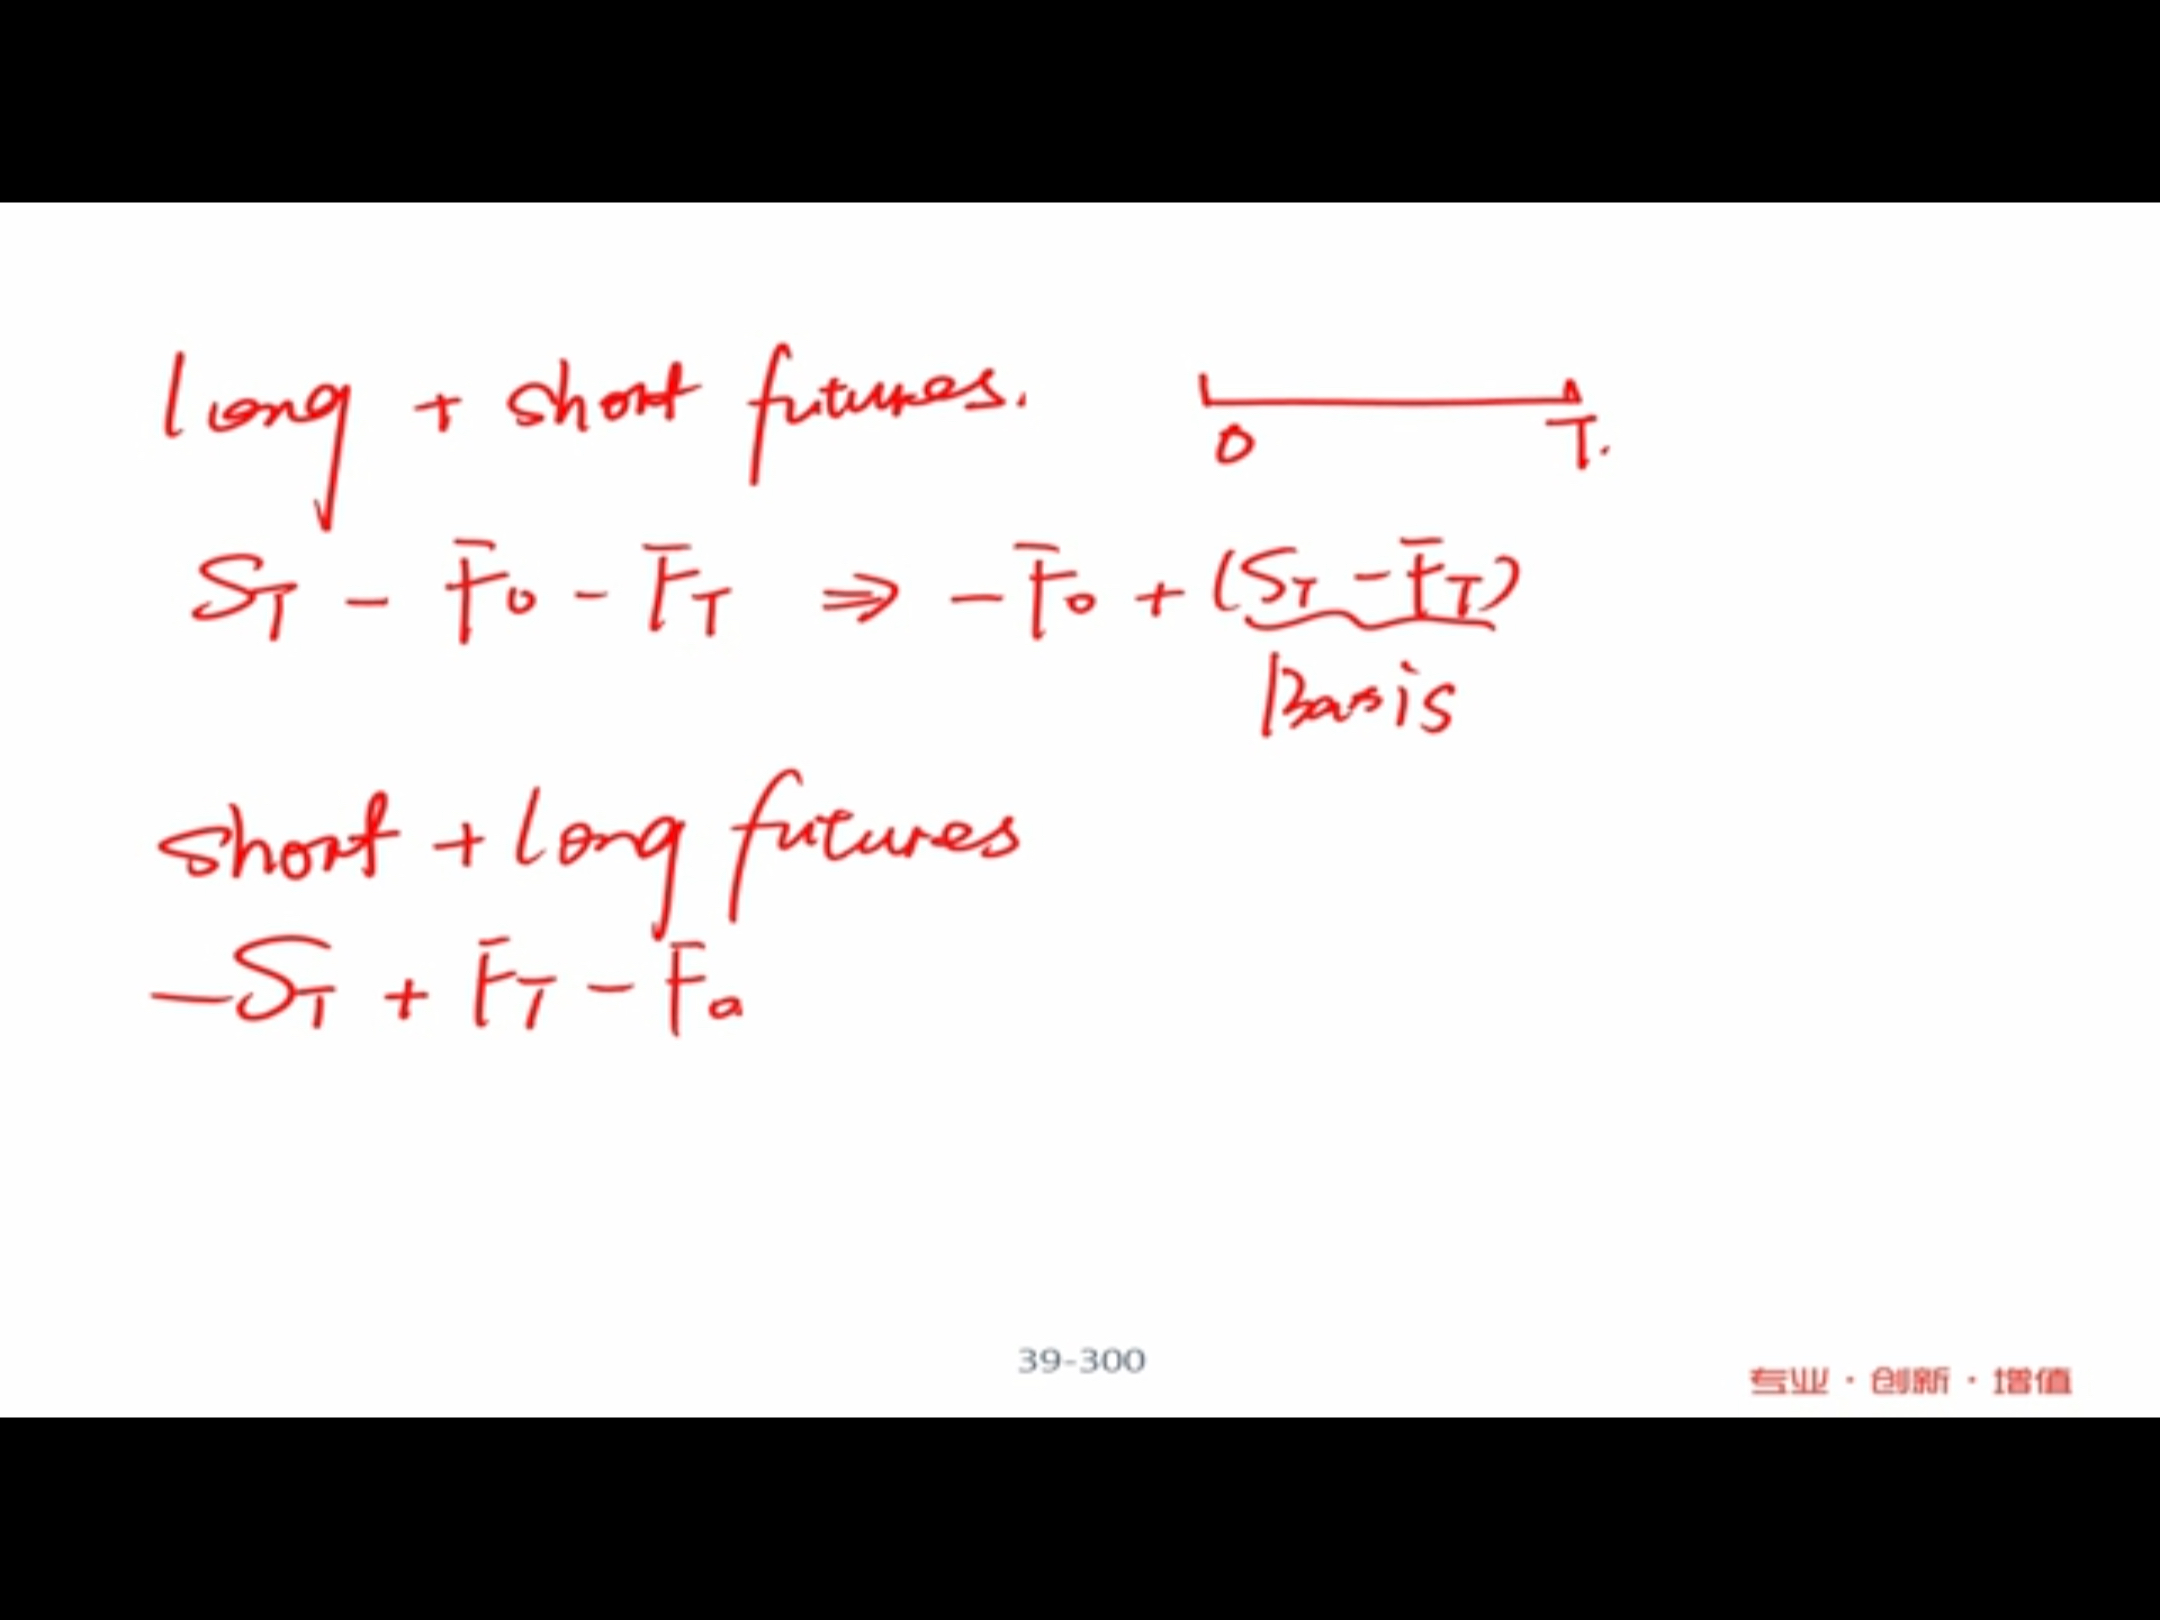 long + short futures.
0 T.
S_T - F_0 - F_T ⇒ - F_0 + (S_T - F_T)
Basis
short + long futures
-S_T + F_T - F_0
39-300
专业·创新·增值